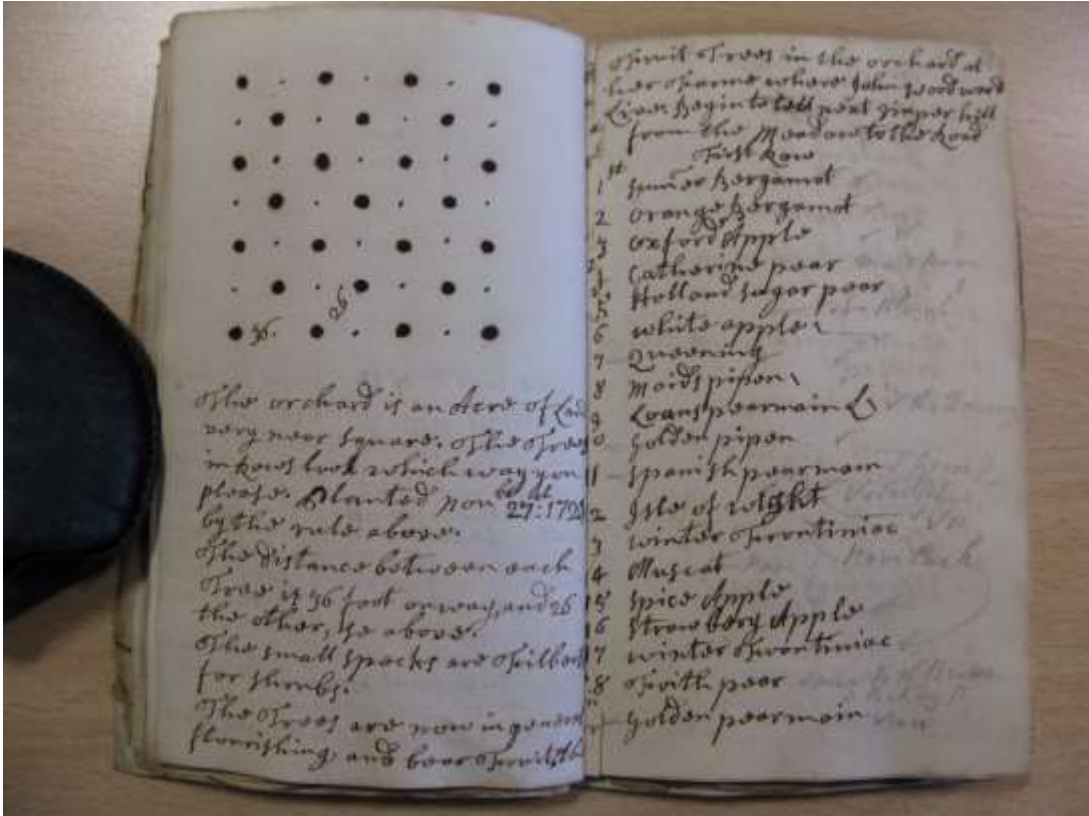 26
36.
The orchard is an Acre of Land
very near square. The Trees
in Rows look which way you
please. Planted Novber at
27: 172
by the rule above.
The distance between each
Tree is 36 foot on way, and 26
the other, se above.
The small specks are Filbert
for shrubs.
The Trees are now in general
flourishing, and bear Fruit, th
Fruit Trees in the orchard at
her Farme where John Woodward
Lives Begin to tell next
from the Meadow to the Road
First Row
1st Sumer Bergamot
2 Orange Bergamot
3 Oxford Apple
4 Catherine pear
5 Holland sugar pear
6 white apple
7 Queening
8 Maids pipen
9 Loans pearmain
0 Golden pipen
11 Spanish pearmain
2 Isle of wight
3 winter Frontiniac
4 Muscat
15 Spice Apple
16 Strawbery Apple
17 winter Frontiniac
18 pear
Golden pearmain